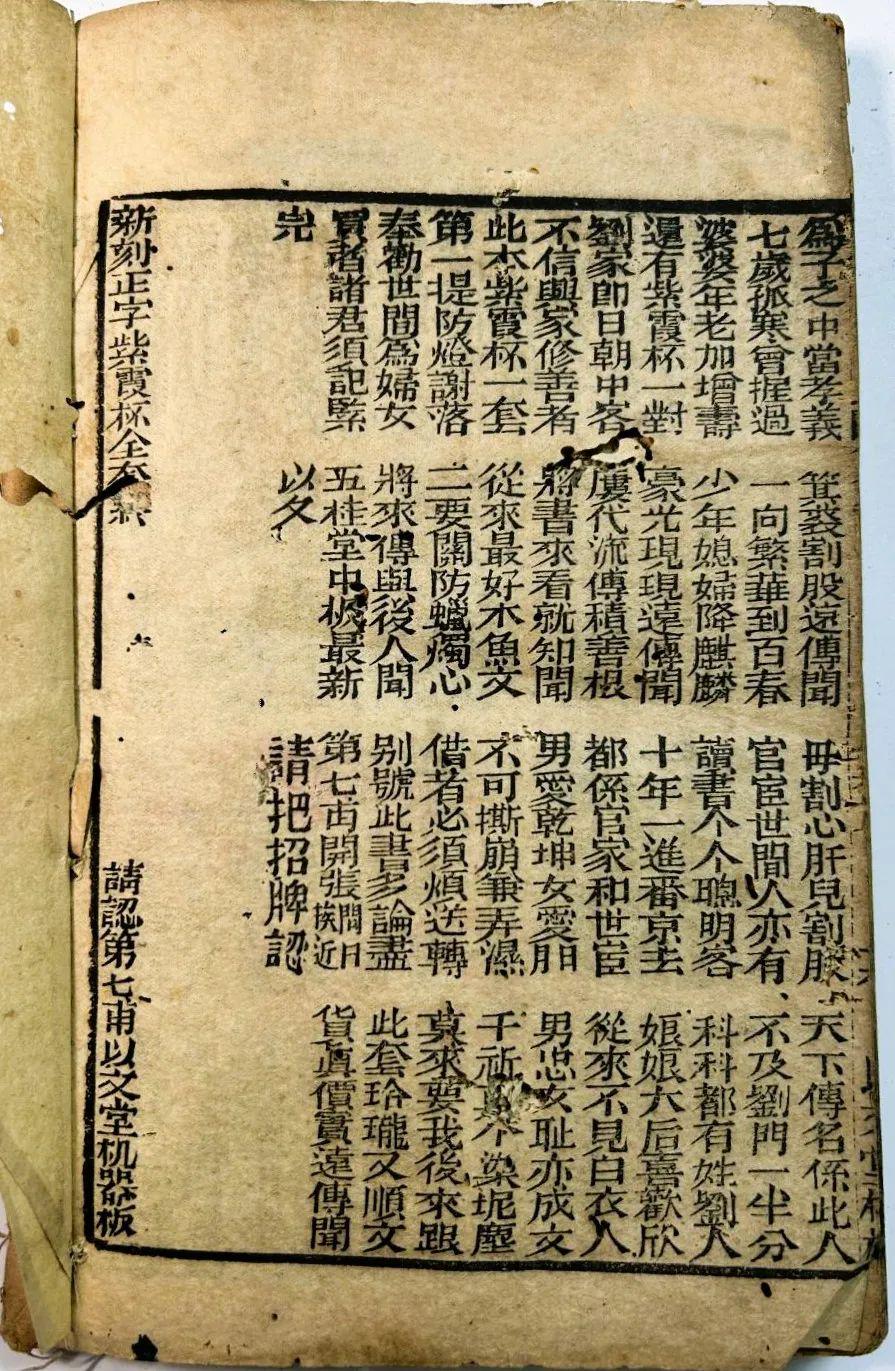 為子之中當孝義 箕裘割股遠傳聞 毋割心肝兒割股 天下傳名係此人
七歲孤寒曾捱過 一向繁華到百春 官宦世間人亦有、不及劉門一半分
婆婆年老加增壽 少年媳婦降麒麟 讀書个个聰明客 科科都有姓劉人
還有紫霞杯一對 豪光現現遠傳聞 十年一進番京去 娘娘太后喜歡欣
劉家即日朝中客 屢代流傳積善根 都係官家和世宦 從來不見白衣人
不信與家修善者 將書來看就知聞 男愛乾坤女愛 男忠女恥亦成文
此本紫霞杯一套 從來最好木魚文 不可撕崩兼弄濕 千祈 个染坭塵
第一提防燈謝落 二要關防蠟燭心 借者必須煩送轉 莫來要我後來跟
奉勸世間為婦女 將來傳與後人聞 別號此書多論盡 此套玲瓏又順文
買者諸君須記緊 五桂堂中板最新 第七甫開張閏日挨近 貨真價實遠傳聞
完 以文 請把招牌認
新刻正字紫霞杯全套終
請認第七甫以文堂机器板